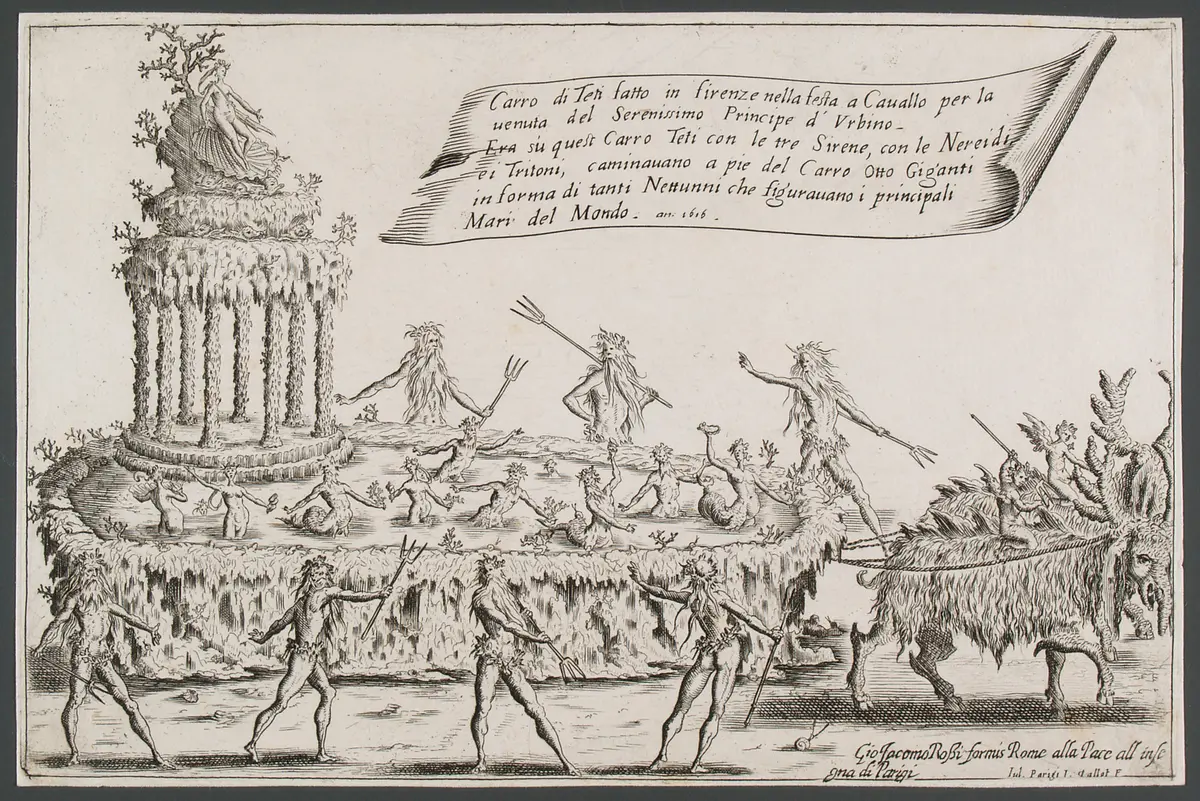 Carro di Teti fatto in firenze nella festa a Cauallo per la
uenuta del Serenissimo Principe d' Vrbino.
Era sù quest Carro Teti con le tre Sirene, con le Nereidi
ei Tritoni, caminauano a pie del Carro Otto Giganti
in forma di tanti Nettunni che figurauano i principali
Mari del Mondo. an. 1616.
Gio Jacomo Rossi formis Rome alla Pace all inse
gna di Parigi
Iul. Parigi I. Callot F.